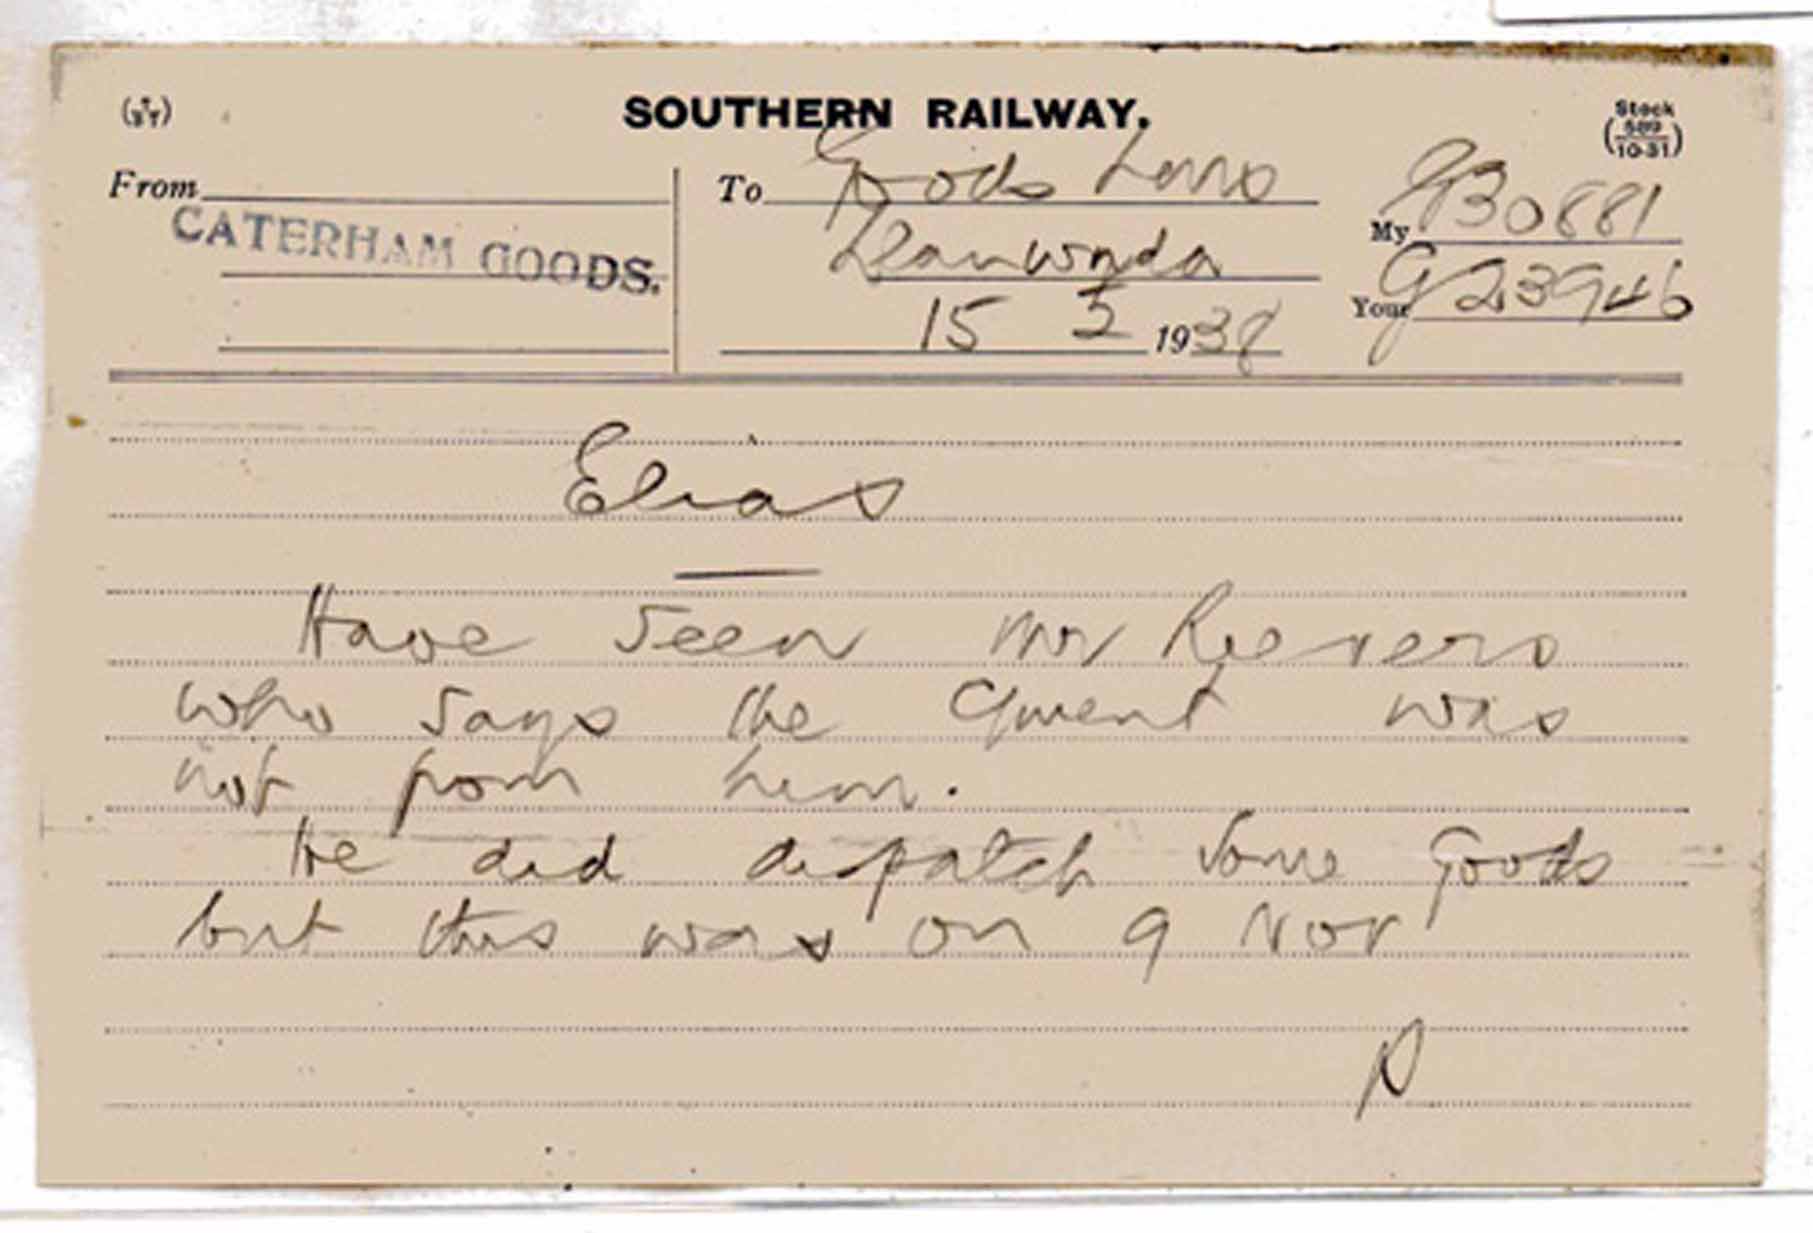 SOUTHERN RAILWAY.
Stock
589
10-31
From
CATERHAM GOODS.
To Goods
15 1938
My 30881
Your G23946
Elias
Have seen Mr Reevers
who says the Cment was
not from him.
He did dispatch some Goods
but this was on 9 Nov